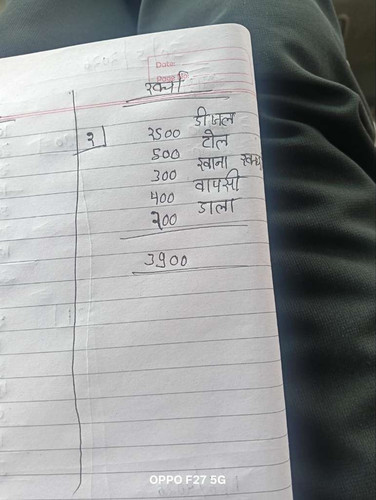 Date
Page
खर्चा
२]
2500 डीजल
500 टोल
300 खाना खर्चा
400 वापसी
200 डाला
3900
OPPO F27 5G